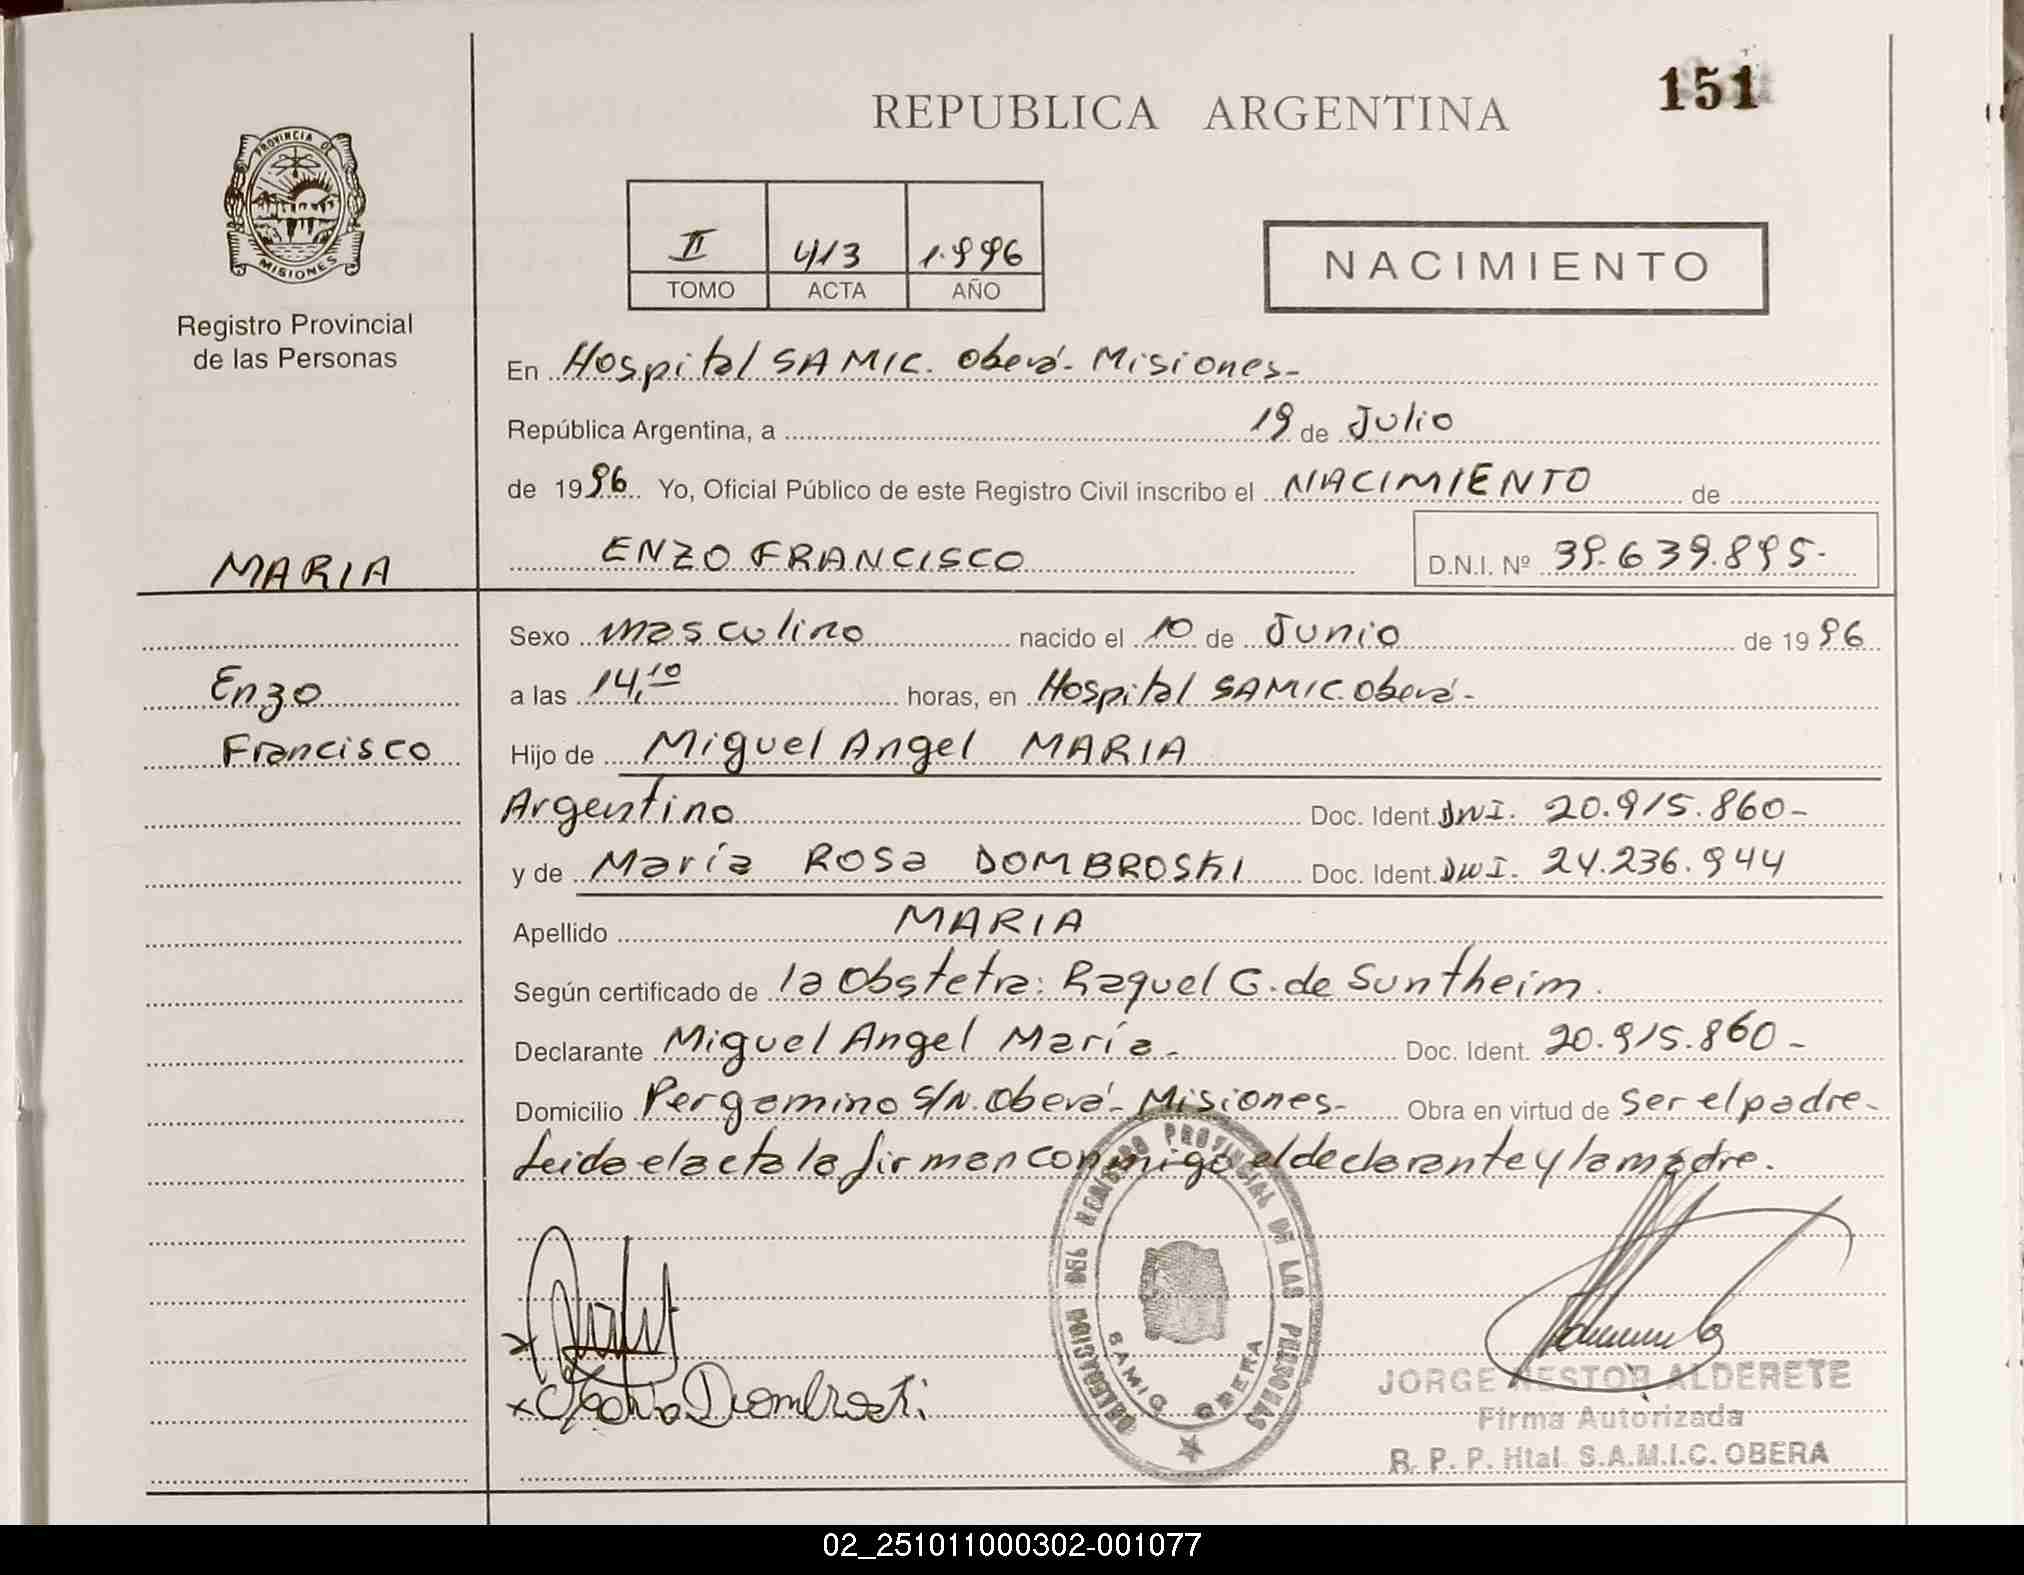 151
REPUBLICA ARGENTINA
PROVINCIA DE
MISIONES
Registro Provincial
de las Personas
II 413 1.996
TOMO ACTA AÑO
NACIMIENTO
En Hospital SAMIC. Oberá- Misiones-
República Argentina, a 19 de Julio
de 1996 Yo, Oficial Público de este Registro Civil inscribo el NACIMIENTO de
MARIA
ENZO FRANCISCO D.N.I. Nº 39.639.895-
Sexo masculino nacido el 10 de Junio de 1996
Enzo
a las 14,10 horas, en Hospital SAMIC Oberá-
Francisco
Hijo de Miguel Angel MARIA
Argentino Doc. Ident. DNI. 20.915.860-
y de María Rosa DOMBROSKI Doc. Ident. DNI. 24.236.944
Apellido MARIA
Según certificado de la Obstetra: Raquel G. de Suntheim.
Declarante Miguel Angel María- Doc. Ident. 20.915.860-
Domicilio Pergamino S/N. Oberá- Misiones- Obra en virtud de ser el padre-
Leida el acta la firman conmigo el declarante y la madre.
DELEGACION DEL REGISTRO PROVINCIAL DE LAS PERSONAS
SAMIC OBERA
x
x Dombroski
JORGE NESTOR ALDERETE
Firma Autorizada
R. P. P. Htal. S.A.M.I.C. OBERA
02_251011000302-001077